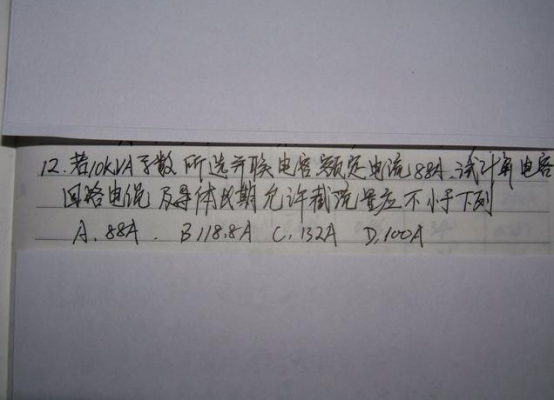 12.若10KVA 系数所选并联电容器额定电流88A.试计算电容
回路电流及导体长期允许截流量应不小于下列
A.88A. B118.8A C.132A D.100A